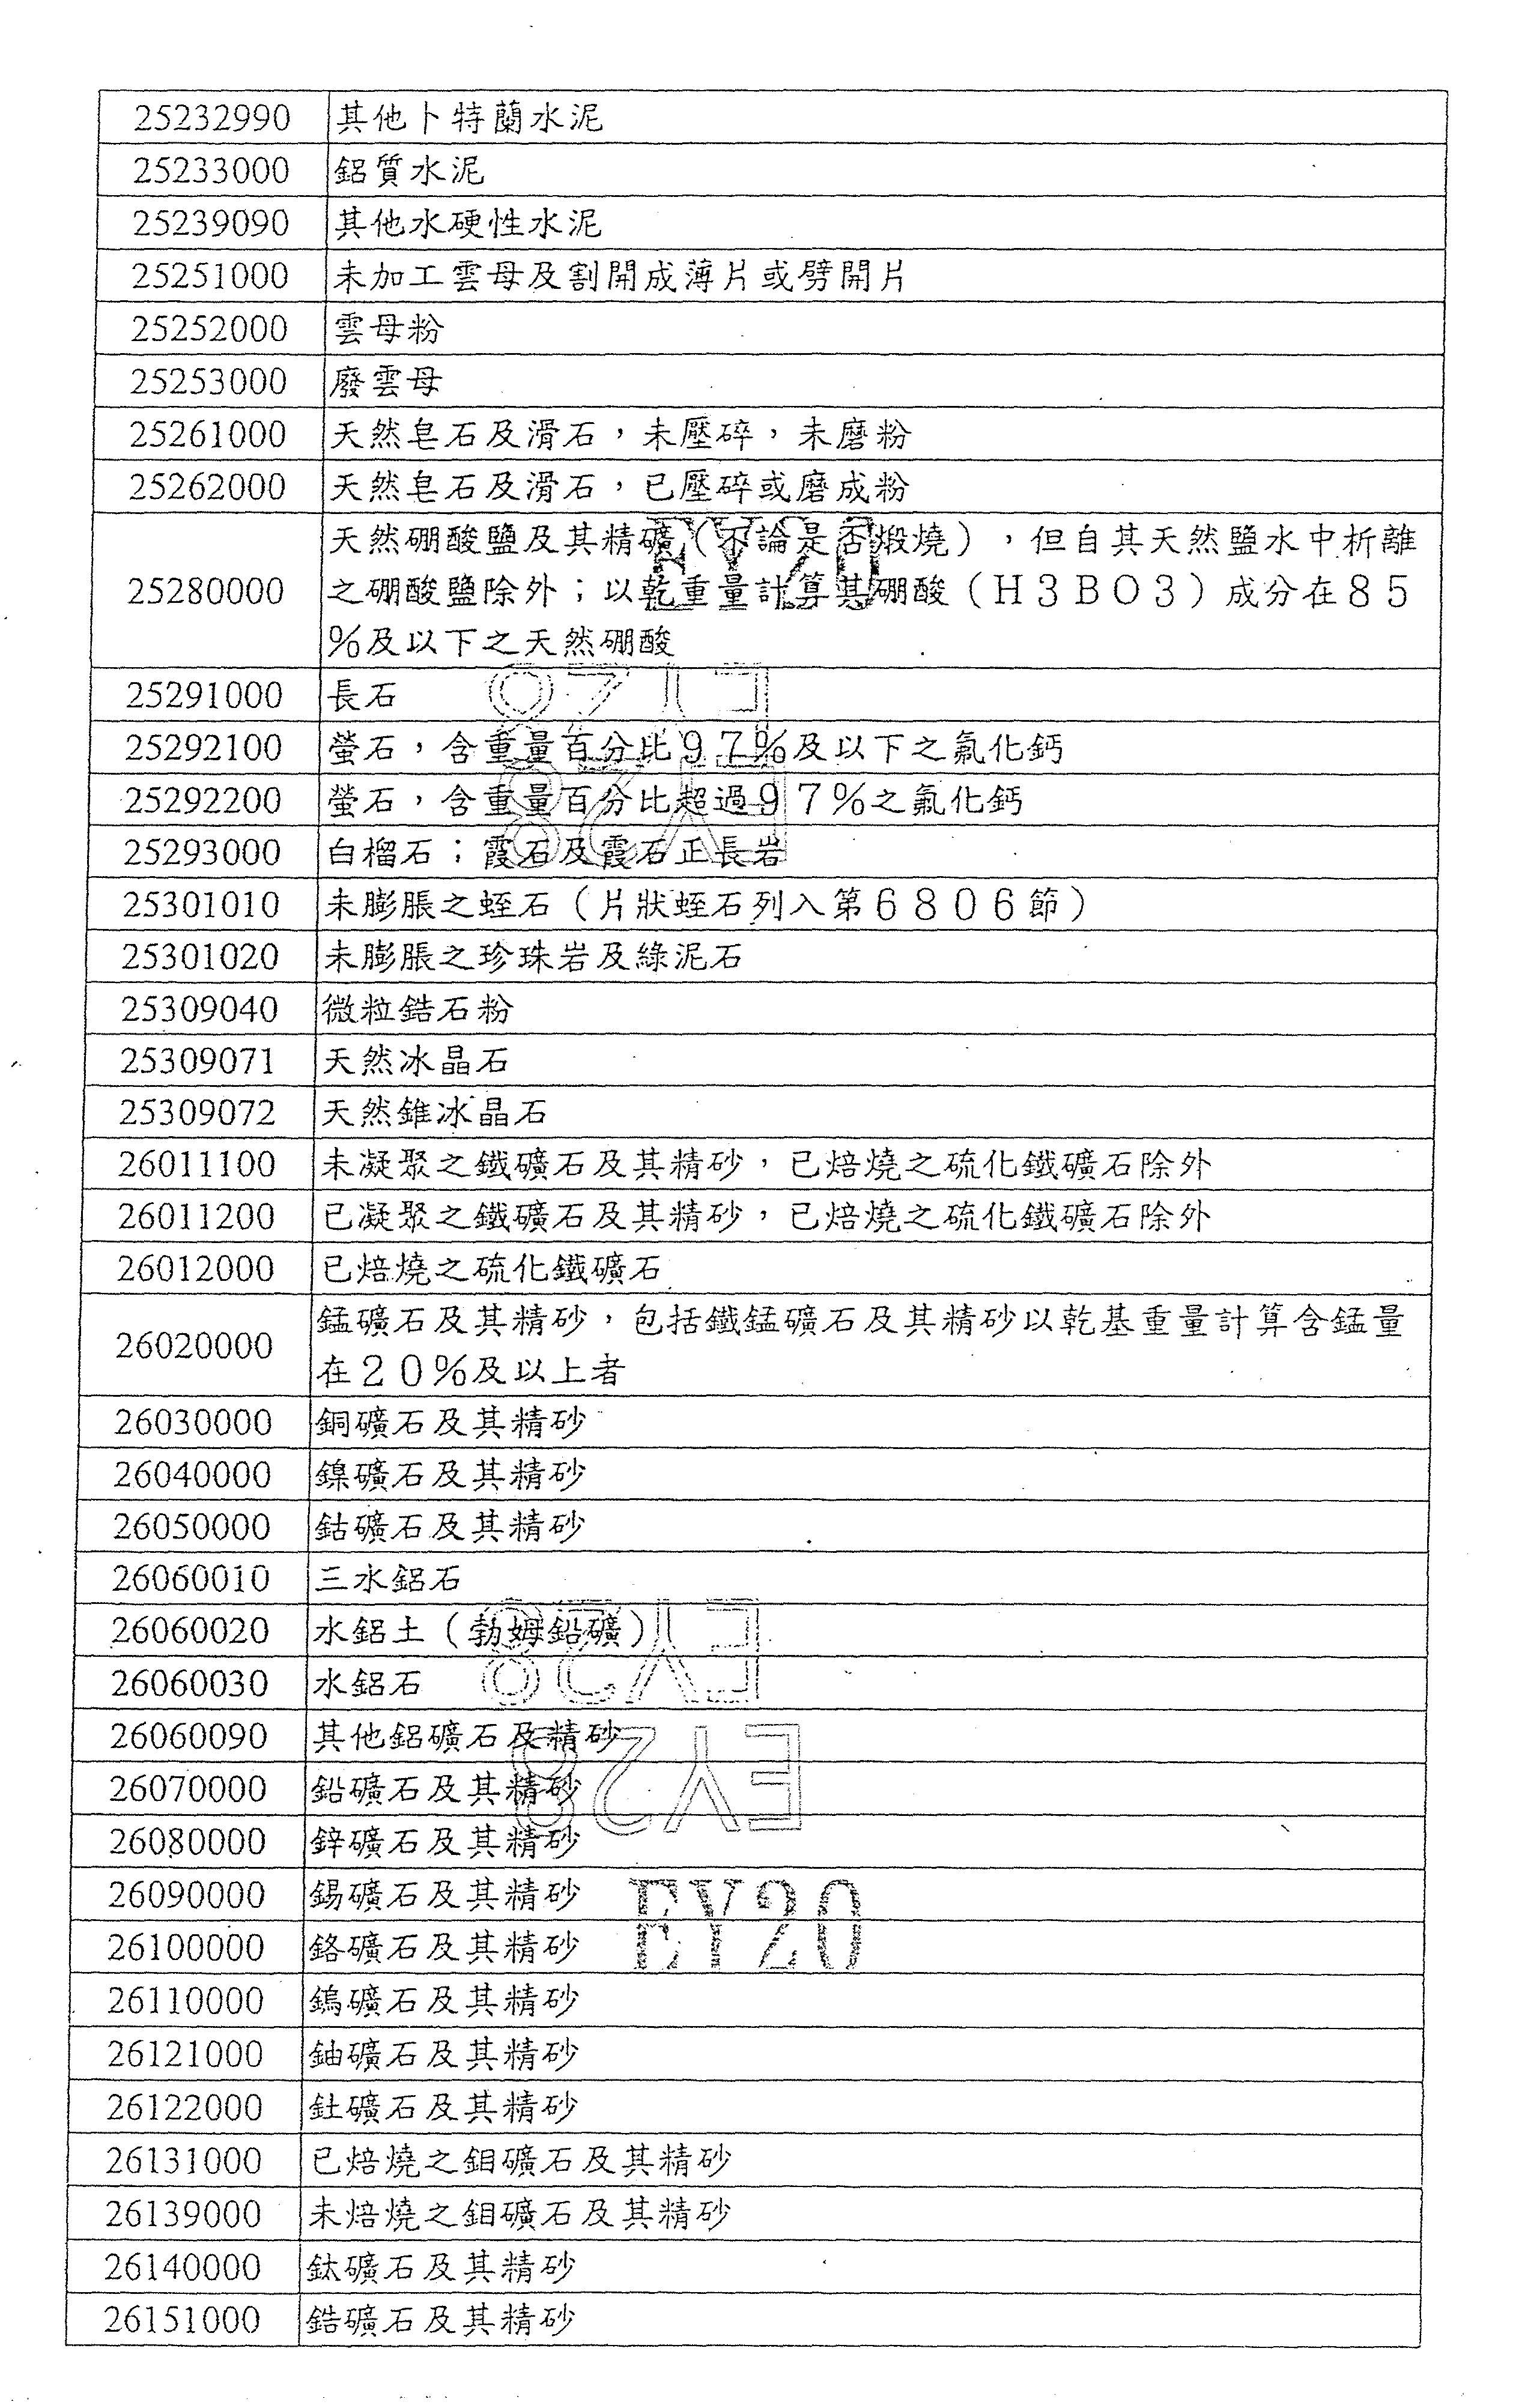 25232990 其他卜特蘭水泥
25233000 鋁質水泥
25239090 其他水硬性水泥
25251000 未加工雲母及割開成薄片或劈開片
25252000 雲母粉
25253000 廢雲母
25261000 天然皂石及滑石，未壓碎，未磨粉
25262000 天然皂石及滑石，已壓碎或磨成粉
天然硼酸鹽及其精礦（不論是否煅燒），但自其天然鹽水中析離
25280000 之硼酸鹽除外；以乾重量計算其硼酸（H3BO3）成分在85
%及以下之天然硼酸
25291000 長石
25292100 螢石，含重量百分比97%及以下之氟化鈣
25292200 螢石，含重量百分比超過97%之氟化鈣
25293000 白榴石；霞石及霞石正長岩
25301010 未膨脹之蛭石（片狀蛭石列入第6806節）
25301020 未膨脹之珍珠岩及綠泥石
25309040 微粒鋯石粉
25309071 天然冰晶石
25309072 天然錐冰晶石
26011100 未凝聚之鐵礦石及其精砂，已焙燒之硫化鐵礦石除外
26011200 已凝聚之鐵礦石及其精砂，已焙燒之硫化鐵礦石除外
26012000 已焙燒之硫化鐵礦石
26020000 錳礦石及其精砂，包括鐵錳礦石及其精砂以乾基重量計算含錳量
在20%及以上者
26030000 銅礦石及其精砂
26040000 鎳礦石及其精砂
26050000 鈷礦石及其精砂
26060010 三水鋁石
26060020 水鋁土（勃姆鉛礦）
26060030 水鋁石
26060090 其他鋁礦石及精砂
26070000 鉛礦石及其精砂
26080000 鋅礦石及其精砂
26090000 錫礦石及其精砂
26100000 鉻礦石及其精砂
EY20
26110000 鎢礦石及其精砂
26121000 鈾礦石及其精砂
26122000 釷礦石及其精砂
26131000 已焙燒之鉬礦石及其精砂
26139000 未焙燒之鉬礦石及其精砂
26140000 鈦礦石及其精砂
26151000 鋯礦石及其精砂
EY20
EY28
EY28
EY28
EY28